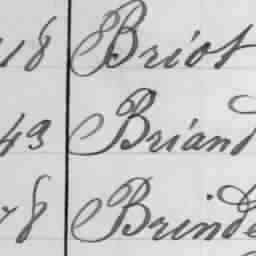 18 Briot
43 Briand
78 Brinde